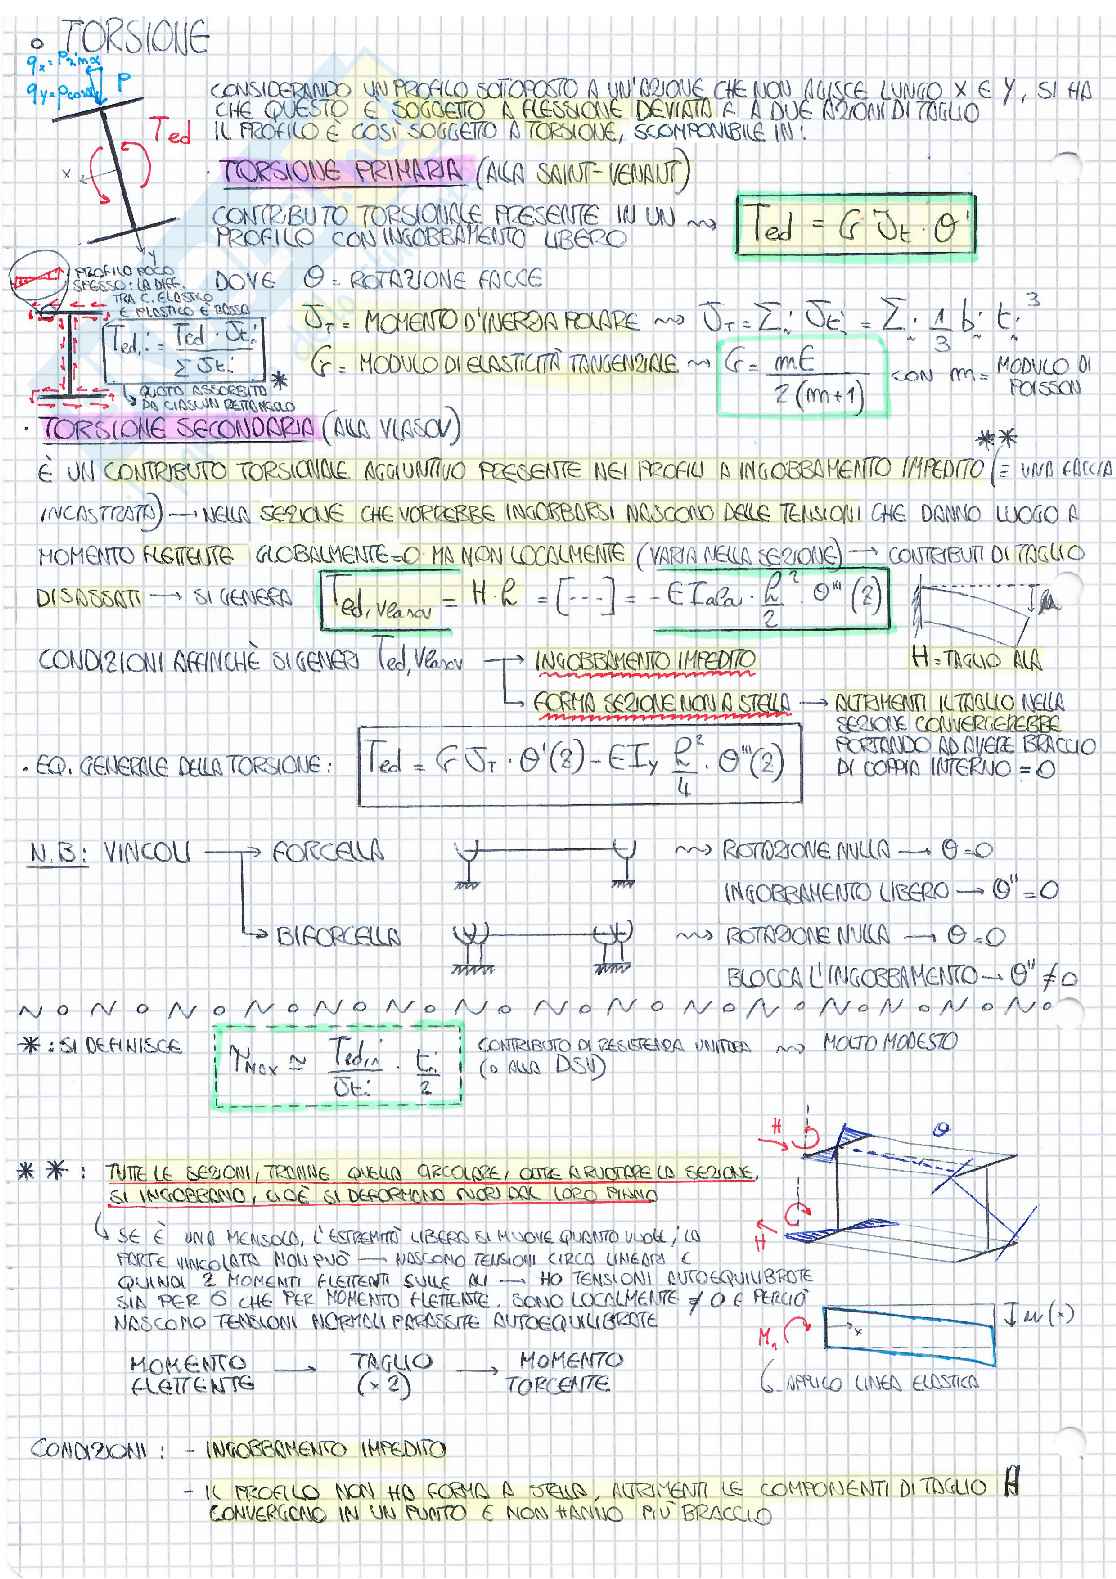 ∘ TORSIONE
qx = P sin α
qy = p cos α
P
Ted
x
y
CONSIDERANDO UN PROFILO SOTOPOSTO A UN'AZIONE CHE NON AGISCE LUNGO X E Y, SI HA
CHE QUESTO È SOGGETTO A FLESSIONE DEVIATA E A DUE AZIONI DI TAGLIO
IL PROFILO È COSÌ SOGGETTO A TORSIONE, SCOMPONIBILE IN:
· TORSIONE PRIMARIA (ALLA SAINT-VENAUT)
CONTRIBUTO TORSIONALE PRESENTE IN UN ⇝ Ted = G Jt · θ'
PROFILO CON INGOBBAMENTO LIBERO
PROFILO POCO
SPESSO: LA DIFF.
TRA C. ELASTICO
E PLASTICO È BASSA
Ted,i = Ted · Jti / Σ Jti *
QUOTA ASSORBITA
DA CIASCUN RETTANGOLO
DOVE θ = ROTAZIONE FACCE
JT = MOMENTO D'INERZIA POLARE ⇝ JT = Σi Jti = Σi 1/3 bi ti³
G = MODULO DI ELASTICITÀ TANGENZIALE ⇝ G = mE / 2(m+1) CON m = MODULO DI
POISSON
· TORSIONE SECONDARIA (ALLA VLASOV)
È UN CONTRIBUTO TORSIONALE AGGIUNTIVO PRESENTE NEI PROFILI A INGOBBAMENTO IMPEDITO ** (= UNA FACCIA
INCASTRATA) → NELLA SEZIONE CHE VORREBBE INGOBBARSI NASCONO DELLE TENSIONI CHE DANNO LUOGO A
MOMENTO FLETTENTE GLOBALMENTE=0 MA NON LOCALMENTE (VARIA NELLA SEZIONE) → CONTRIBUTI DI TAGLIO
DISASSATI → SI GENERA Ted,Vlasov = H·h = [---] = -E Iala · h²/2 · θ'''(z)
H = TAGLIO ALA
CONDIZIONI AFFINCHÈ SI GENERI Ted,Vlasov → INGOBBAMENTO IMPEDITO
→ FORMA SEZIONE NON A STELLA → ALTRIMENTI IL TAGLIO NELLA
SEZIONE CONVERGEREBBE
PORTANDO AD AVERE BRACCIO
DI COPPIA INTERNO = 0
· EQ. GENERALE DELLA TORSIONE: Ted = G JT · θ'(z) - E Iy h²/4 · θ'''(z)
N.B: VINCOLI → FORCELLA ⇝ ROTAZIONE NULLA → θ=0
INGOBBAMENTO LIBERO → θ''=0
→ BIFORCELLA ⇝ ROTAZIONE NULLA → θ=0
BLOCCA L'INGOBBAMENTO → θ''≠0
* : SI DEFINISCE τMAX ≃ Ted,i / Jti · ti / 2
CONTRIBUTO DI RESISTENZA UNITARIA ⇝ MOLTO MODESTO
(o ALLA DSV)
** : TUTTE LE SEZIONI, TRANNE QUELLA CIRCOLARE, OLTRE A RUOTARE LA SEZIONE,
SI INGOBBANO, CIOÈ SI DEFORMANO FUORI DAL LORO PIANO
↳ SE È UNA MENSOLA, L'ESTREMITÀ LIBERA SI MUOVE QUANTO VUOLE; LA
PARTE VINCOLATA NON PUÒ → NASCONO TENSIONI CIRCA LINEARI E
QUINDI 2 MOMENTI FLETTENTI SULLE ALI → HO TENSIONI AUTOEQUILIBRATE
SIA PER σ CHE PER MOMENTO FLETTENTE. SONO LOCALMENTE ≠ 0 E PERCIÒ
NASCONO TENSIONI NORMALI PARASSITE AUTOEQUILIBRATE
H
H
θ
x
MOMENTO FLETTENTE → TAGLIO (×2) → MOMENTO TORCENTE
APPLICO LINEA ELASTICA
CONDIZIONI: - INGOBBAMENTO IMPEDITO
- IL PROFILO NON HA FORMA A STELLA, ALTRIMENTI LE COMPONENTI DI TAGLIO H
CONVERGONO IN UN PUNTO E NON HANNO PIÙ BRACCIO